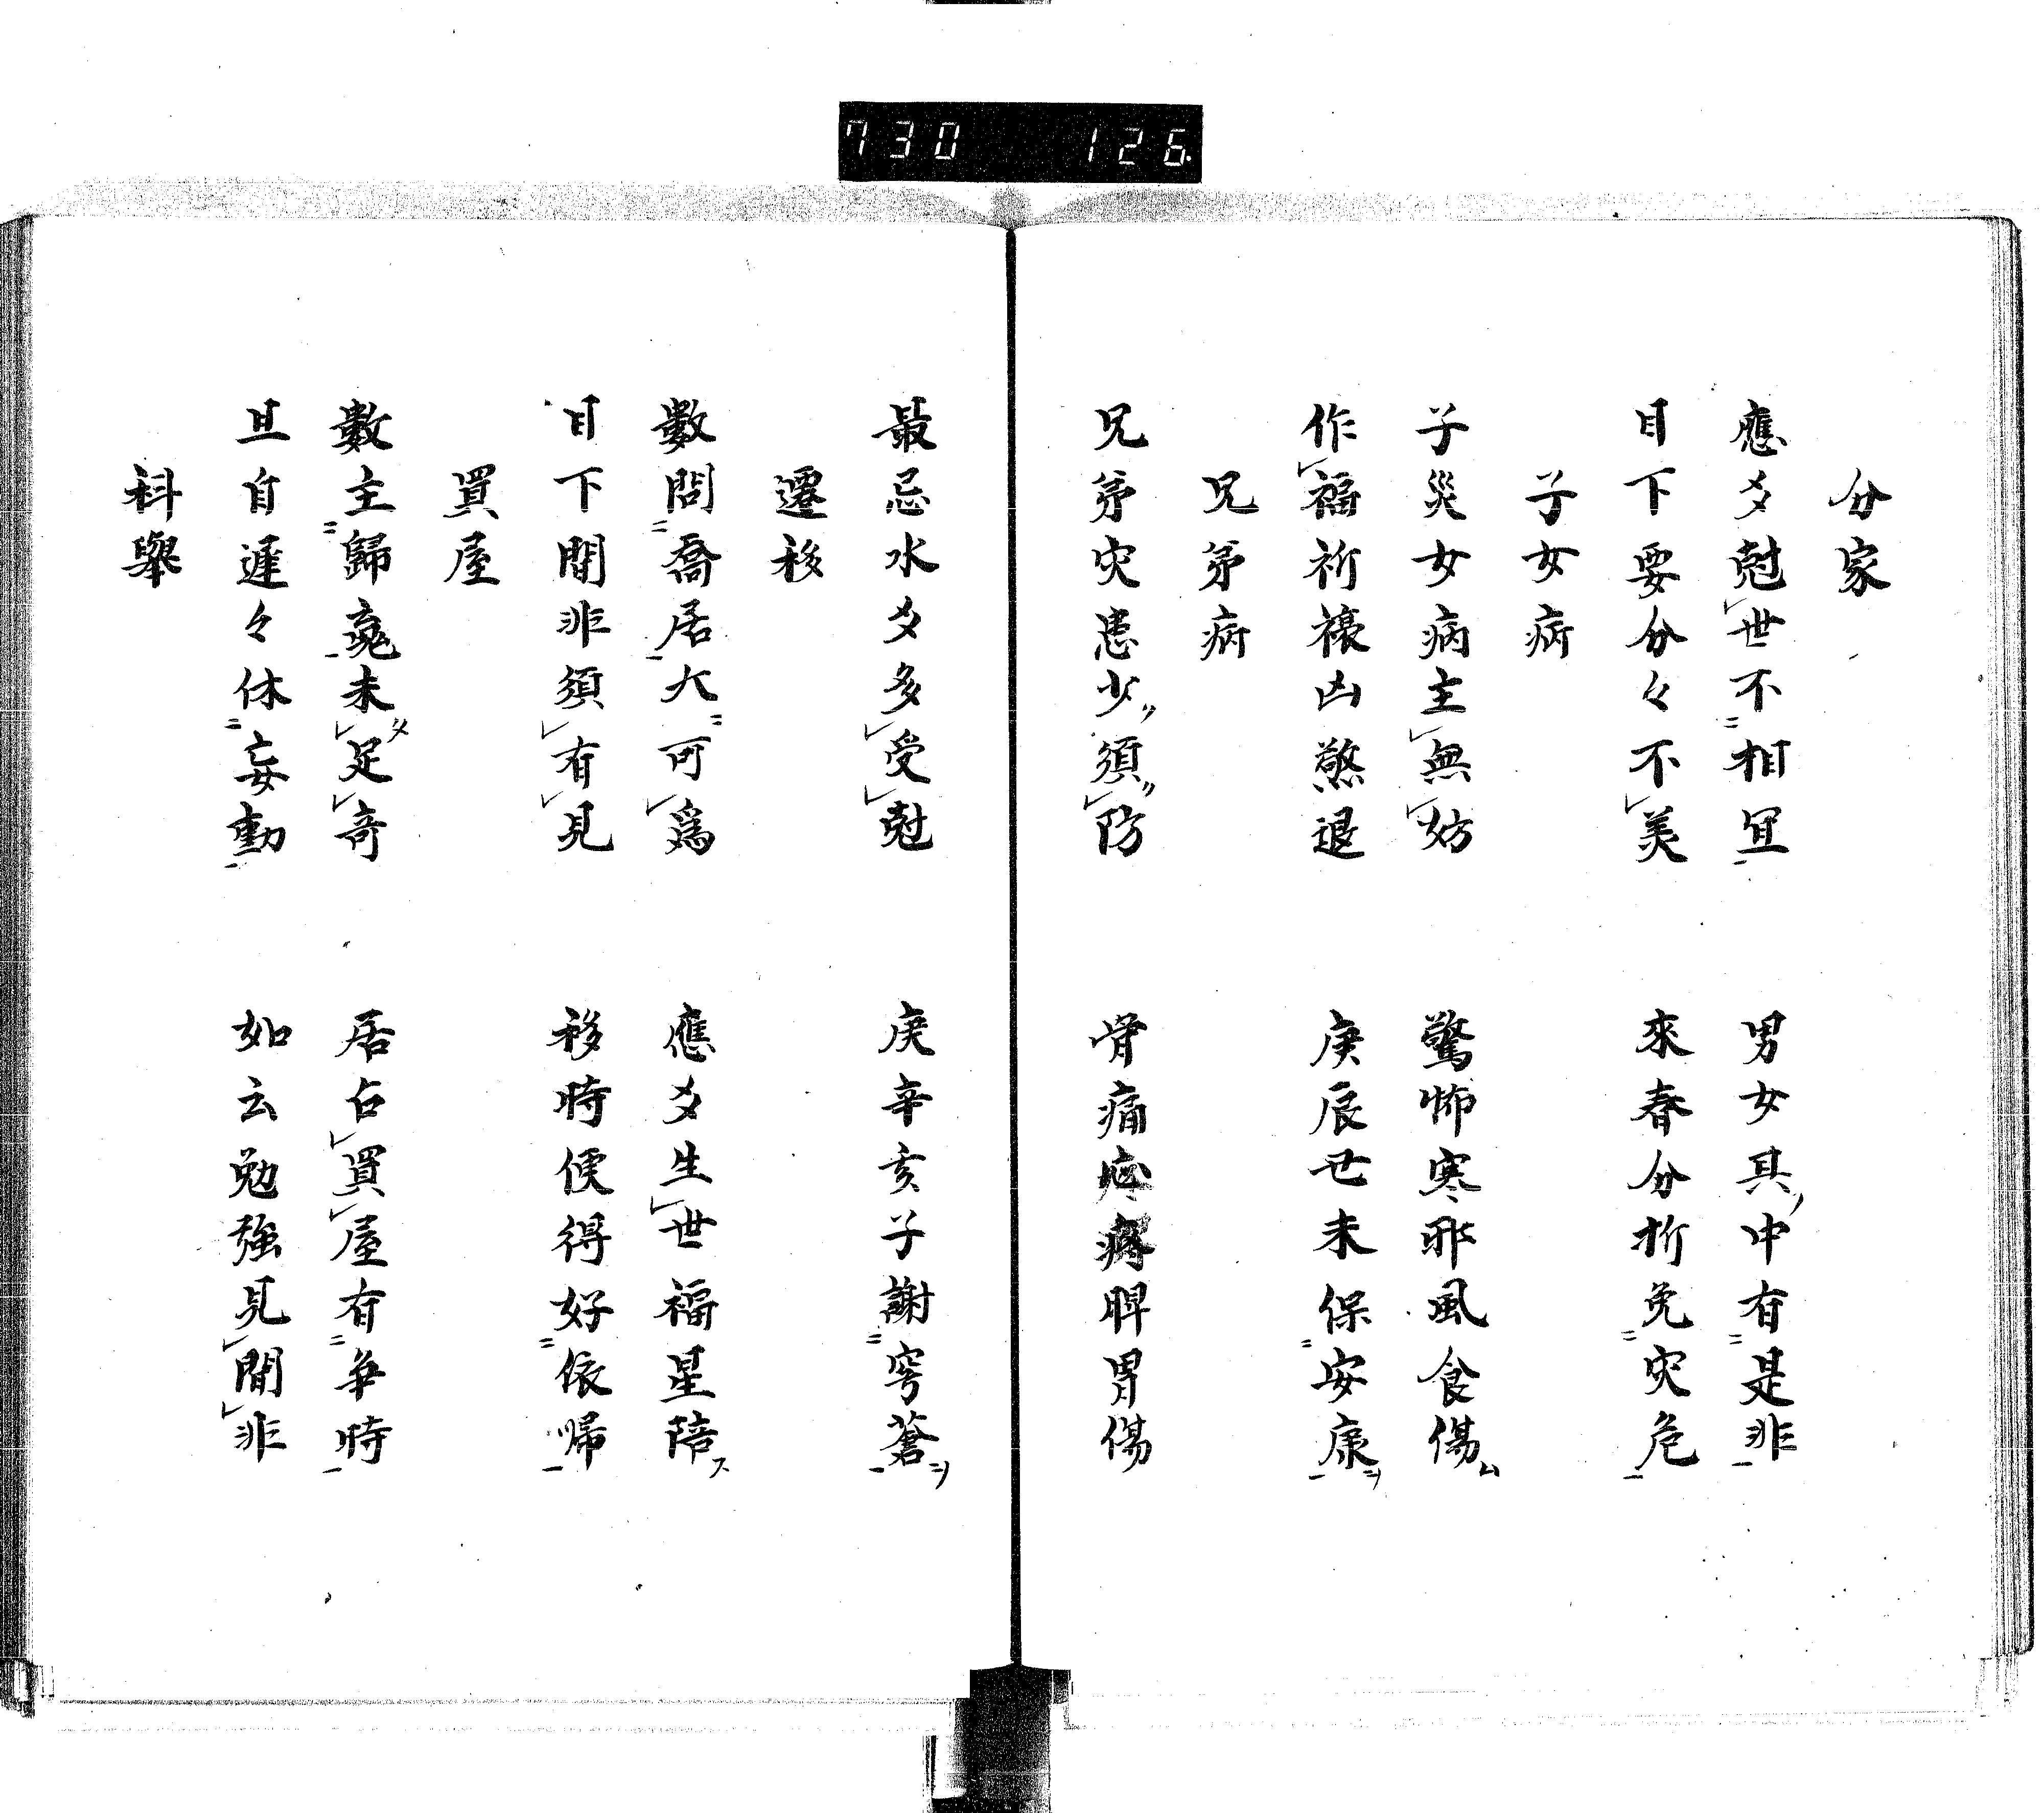 730 126
分家
應爻尅世不相宜 男女其中有是非
目下要分々不美 來春分析免灾危
子女病
子災女病主無妨 驚怖寒邪風食傷
作福祈禳凶煞退 庚辰世未保安康
兄弟病
兄弟灾患少須防 骨痛脾胃傷
最忌水爻多受尅 庚辛亥子謝穹蒼
遷移
數問喬居大可爲 應爻生世福星陪
目下間非須有見 移時便得好依帰
買屋
數主歸未足奇 居占買屋有爭時
旦自遲々休妄動 如云勉強見間非
科舉